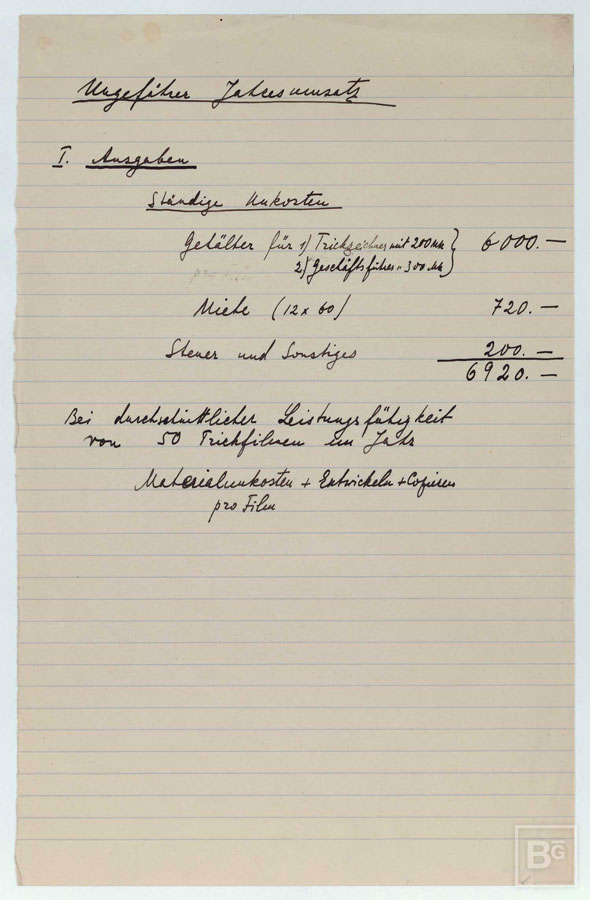 Ungefährer Jahresumsatz
I. Ausgaben
Ständige Unkosten
Gehälter für 1) Trickzeichner mit 200 Mk } 6000.—
2) Geschäftsführer " 300 Mk
pro Film
Miete (12 x 60) 720.—
Steuer und Sonstiges 200.—
6920.—
Bei durchschnittlicher Leistungsfähigkeit
von 50 Trickfilmen im Jahr
Materialunkosten + Entwickeln + Copieren
pro Film
BG